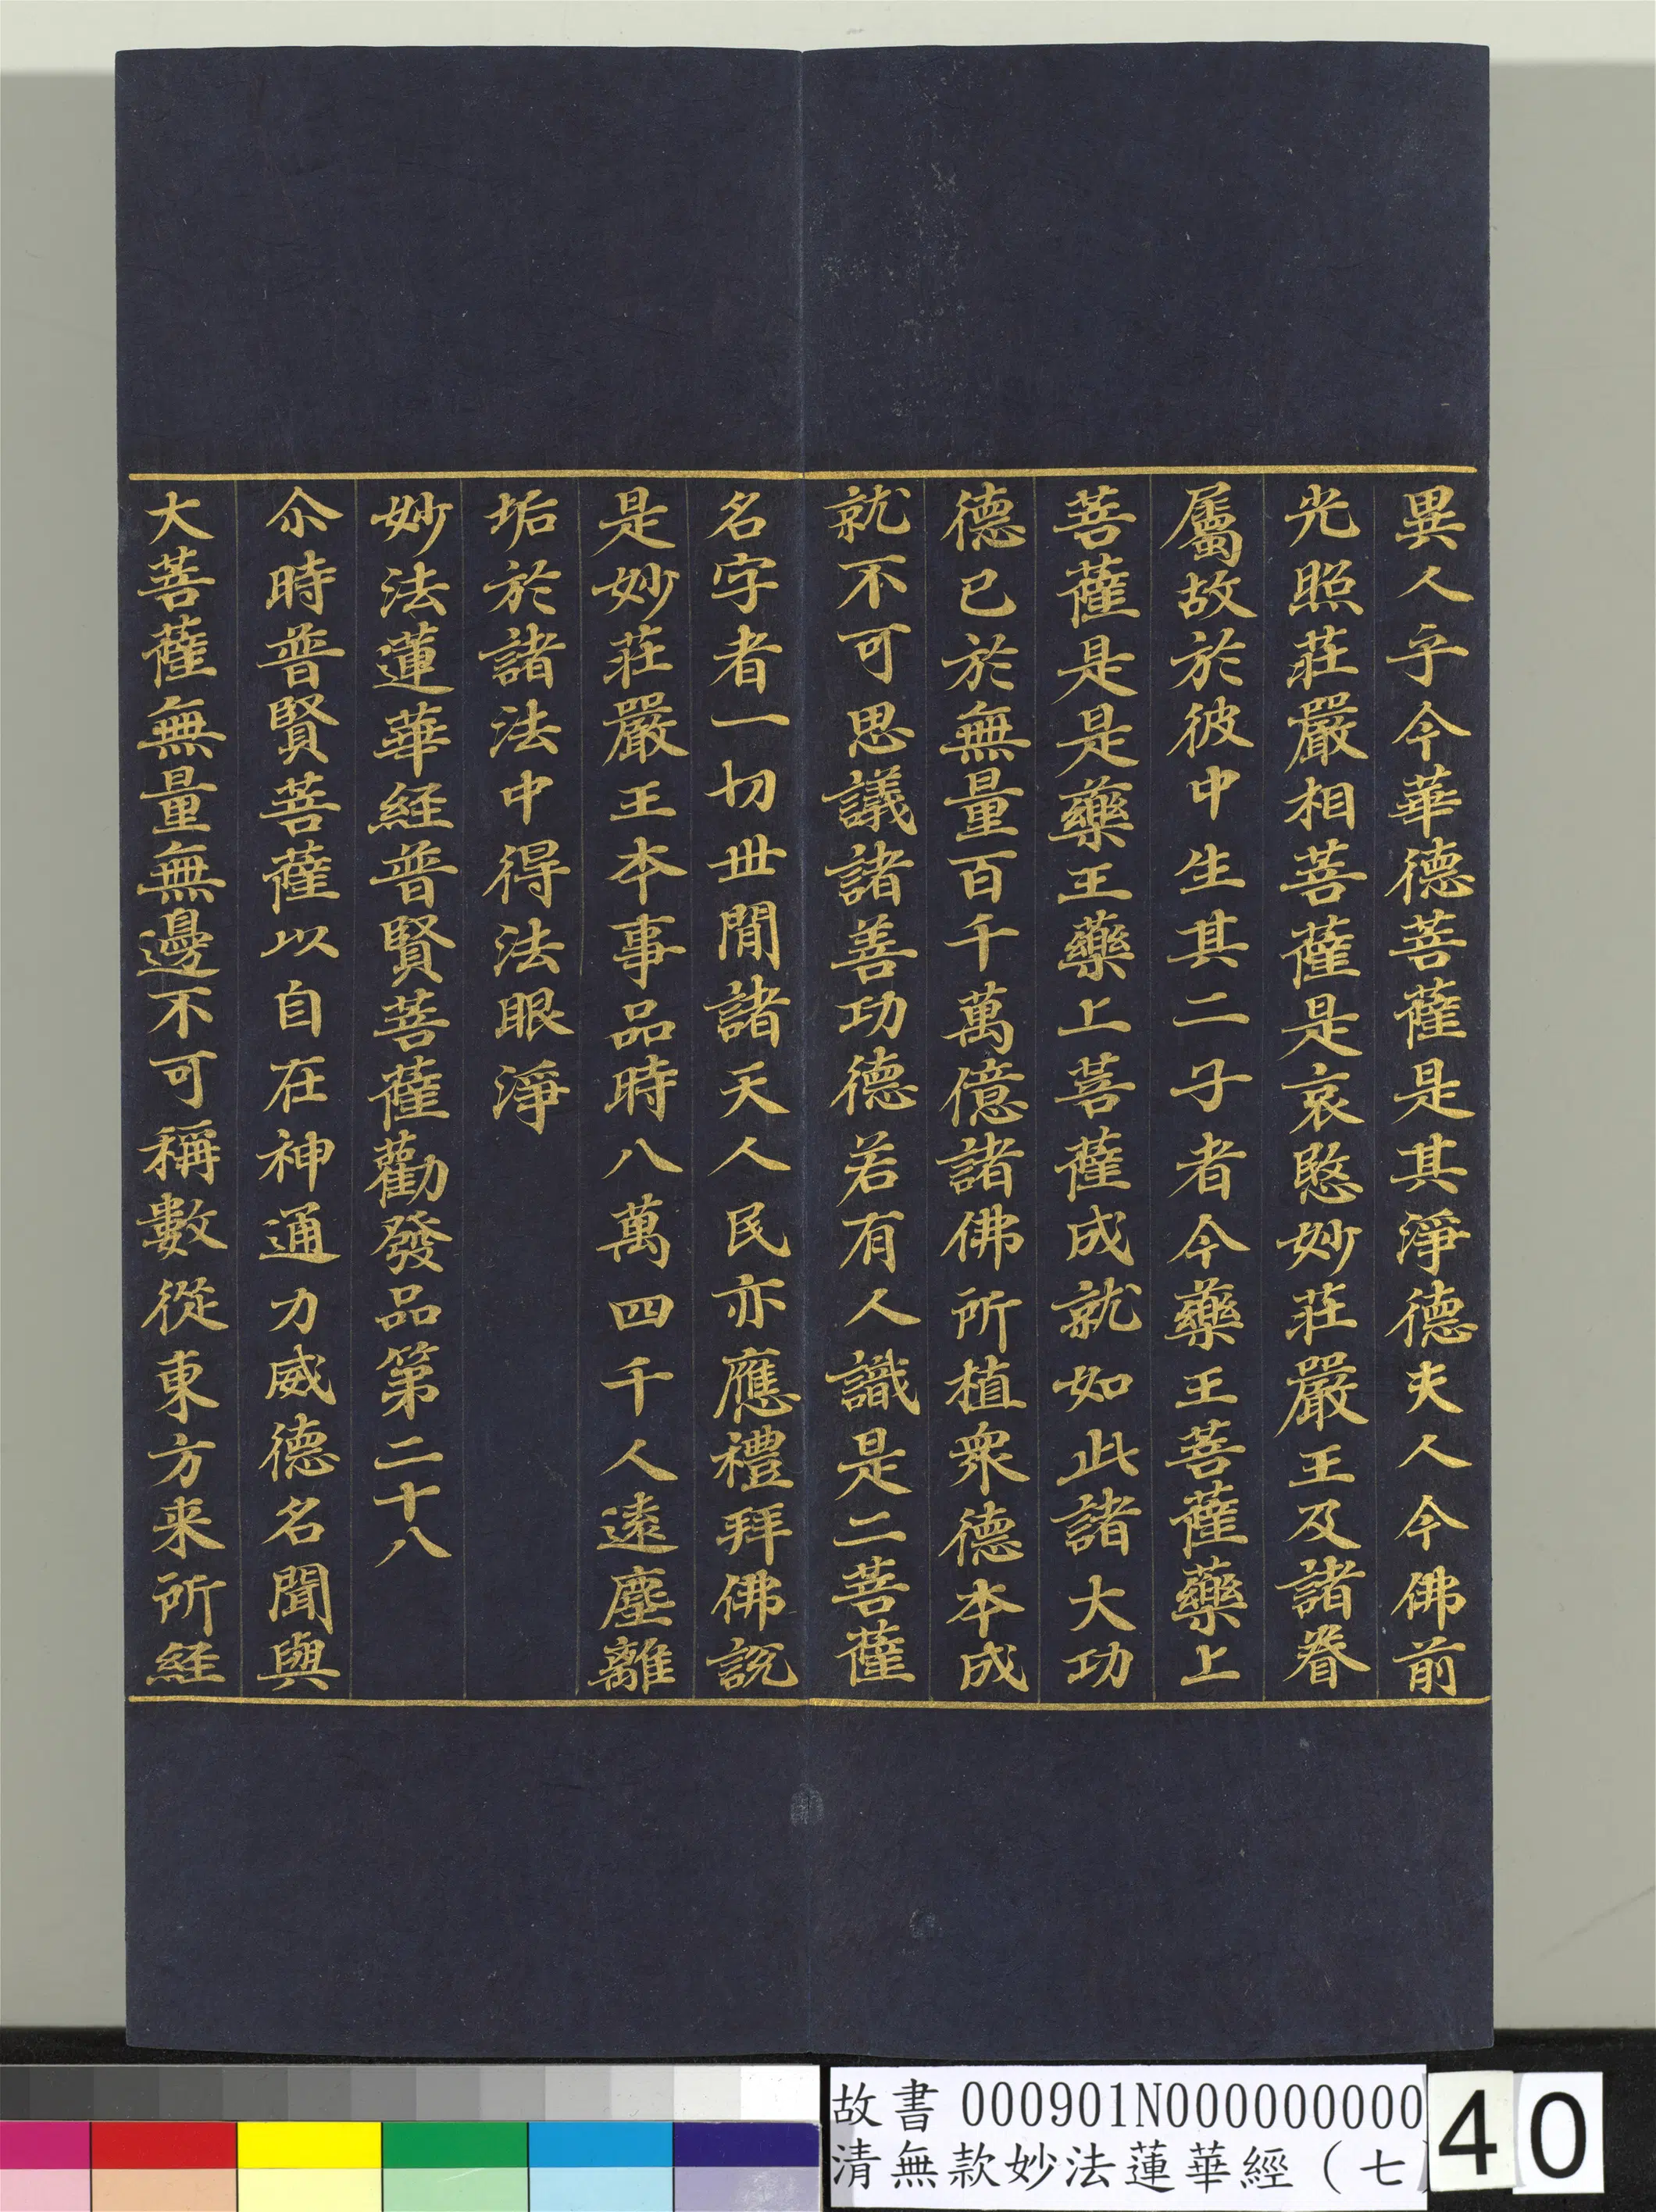 異人乎今華德菩薩是其淨德夫人今佛前
光照莊嚴相菩薩是哀愍妙莊嚴王及諸眷
屬故於彼中生其二子者今藥王菩薩藥上
菩薩是是藥王藥上菩薩成就如此諸大功
德已於無量百千萬億諸佛所植眾德本成
就不可思議諸善功德若有人識是二菩薩
名字者一切世間諸天人民亦應禮拜佛說
是妙莊嚴王本事品時八萬四千人遠塵離
垢於諸法中得法眼淨
妙法蓮華經普賢菩薩勸發品第二十八
尒時普賢菩薩以自在神通力威德名聞與
大菩薩無量無邊不可稱數從東方来所經
故書 000901N000000000
清無款妙法蓮華經（七
40